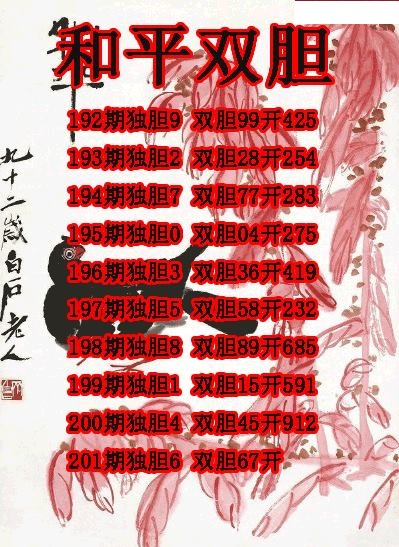 和平双胆
192期独胆9 双胆99开425
193期独胆2 双胆28开254
194期独胆7 双胆77开283
195期独胆0 双胆04开275
196期独胆3 双胆36开419
197期独胆5 双胆58开232
198期独胆8 双胆89开685
199期独胆1 双胆15开591
200期独胆4 双胆45开912
201期独胆6 双胆67开
九十二岁白石老人